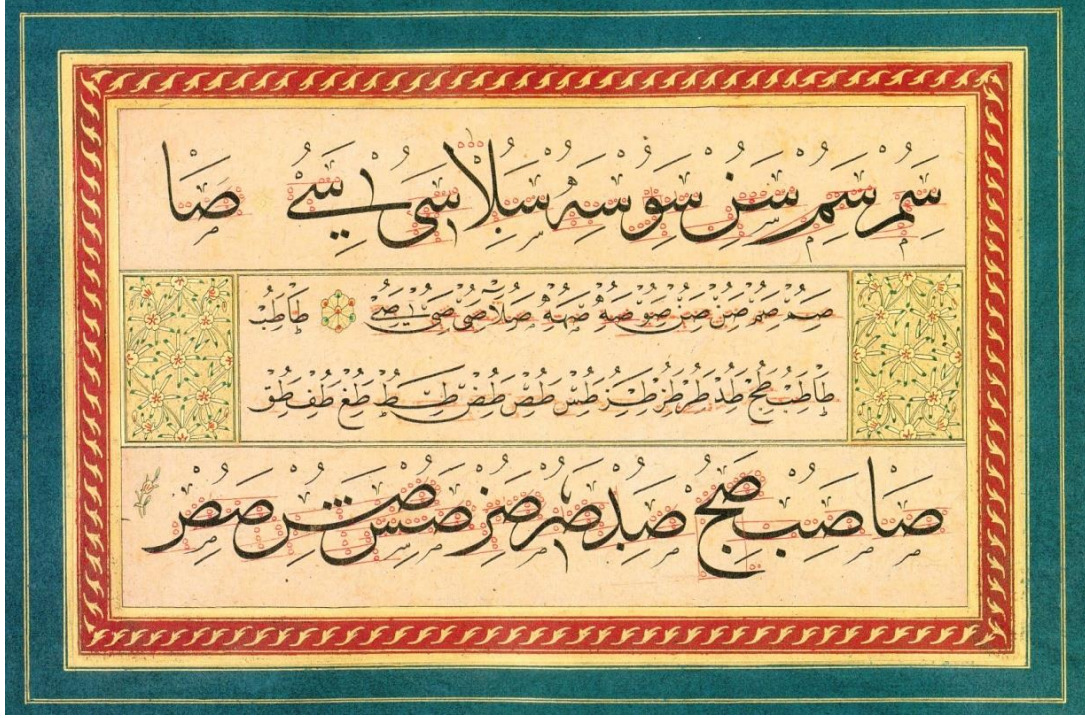 سم سم سن سو سه سلا سى سے صا
صم صم صن صن صو صه صه صلا صى صے طا طب
طا طب طح طد طر طر طس طص طط طع طف طق
صا صب صح صد صر صر صس صص